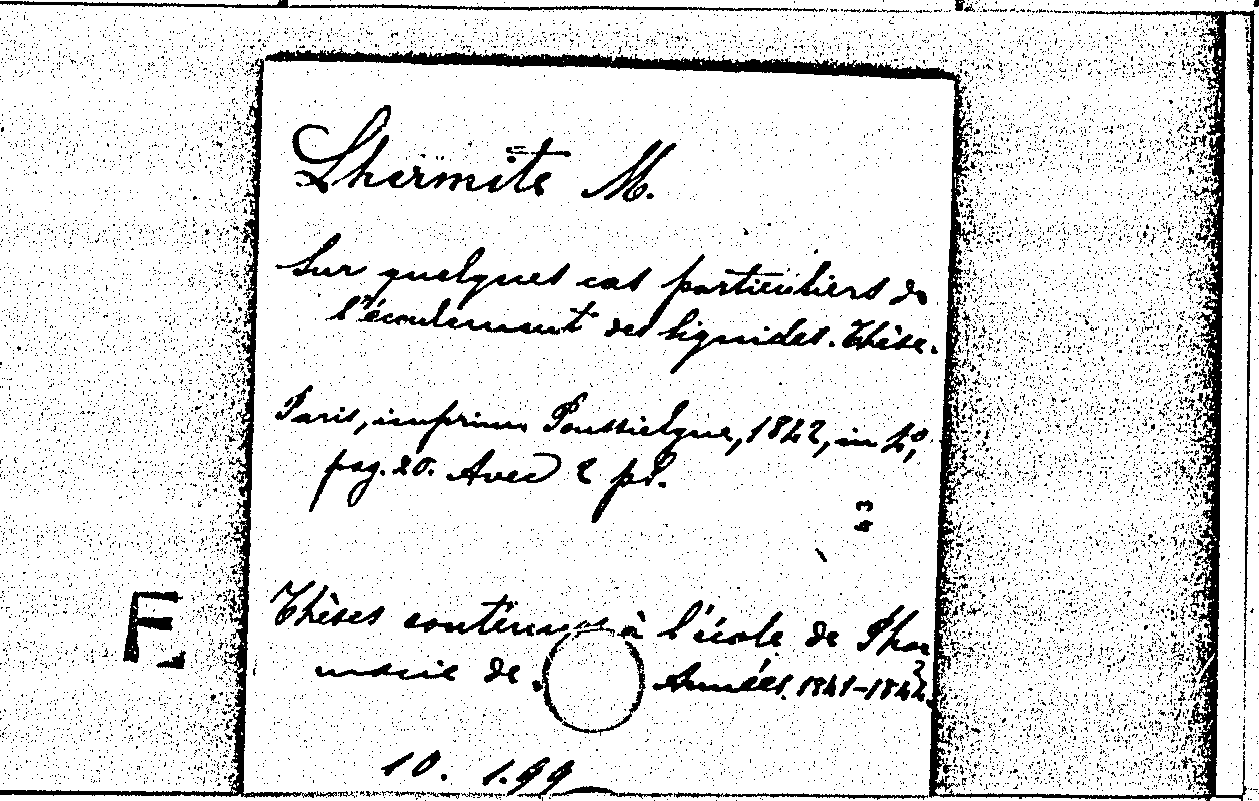 Lhermite M.
Sur quelques cas particuliers de
l'écoulement des liquides. Thèse.
Paris, imprim Poussielgue, 1842, in 4º,
pag. 20. Avec 2 pl.
Thèses soutenues à l'école de Phar
macie de Années 1841-1842.
10. 1.99
E